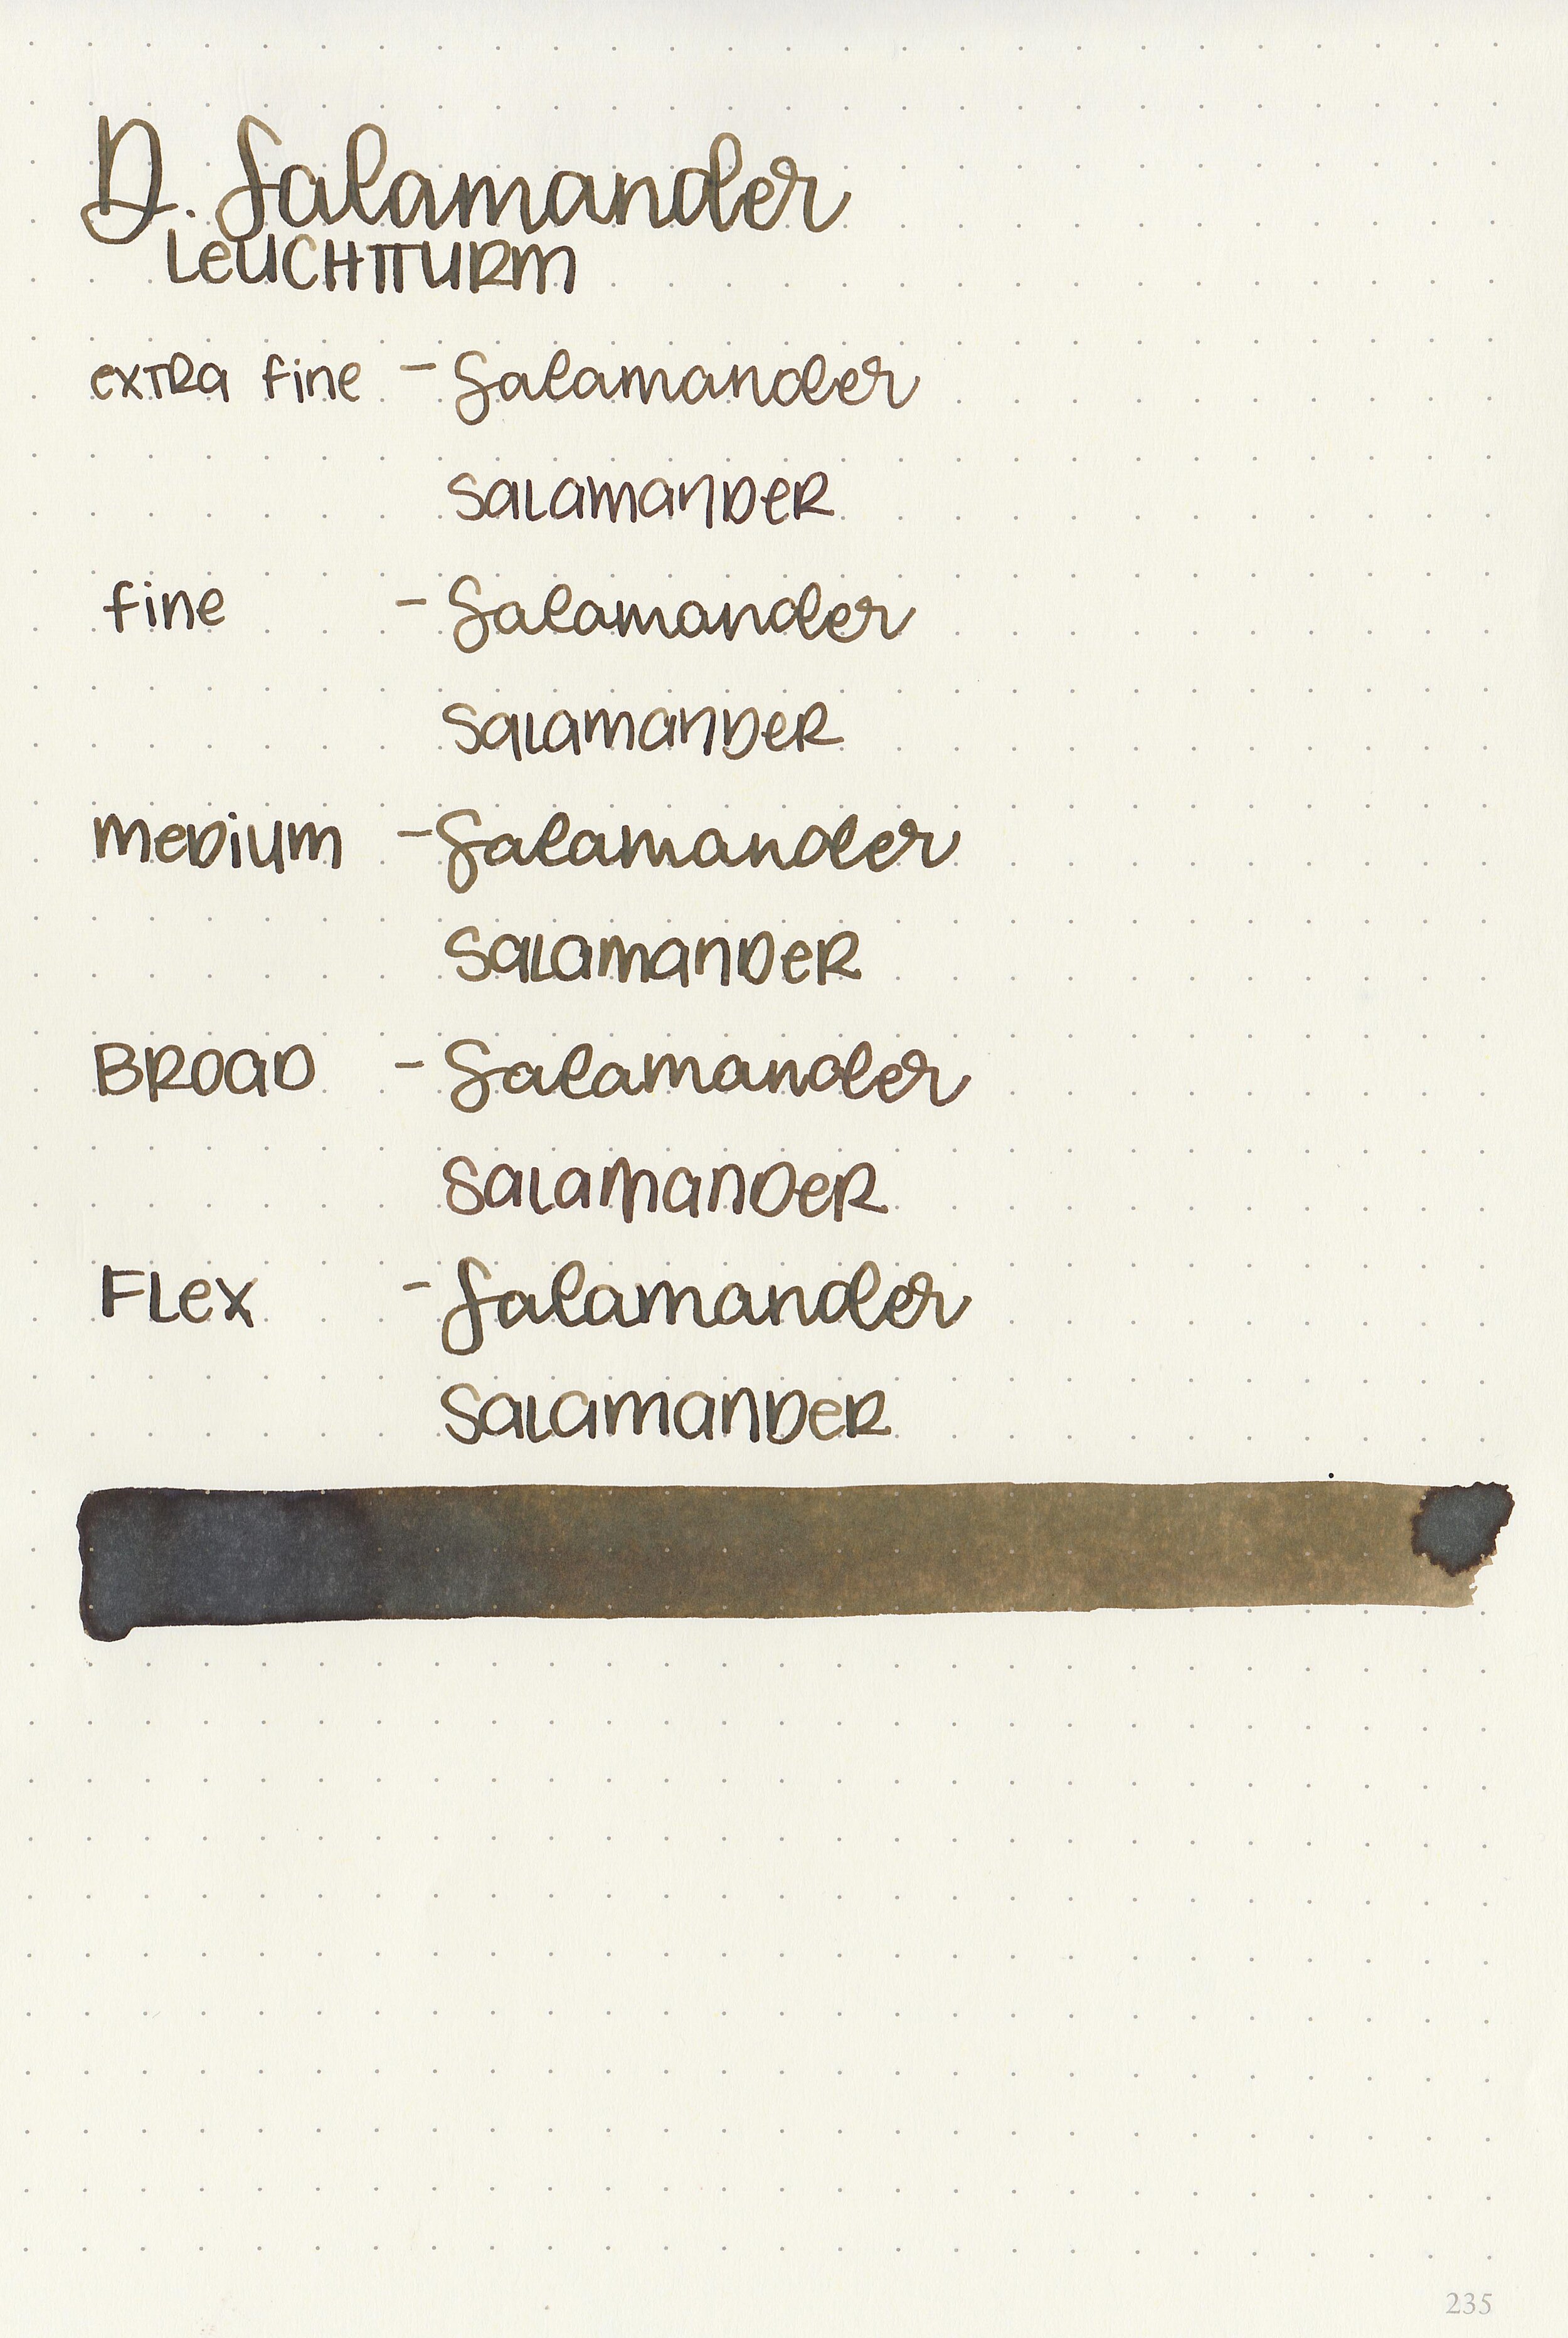 D. Salamander
LEUCHTTURM
extra fine - Salamander
SALAMANDER
fine - Salamander
SALAMANDER
medium - Salamander
SALAMANDER
BROAD - Salamander
SALAMANDER
FLEX - Salamander
SALAMANDER
235